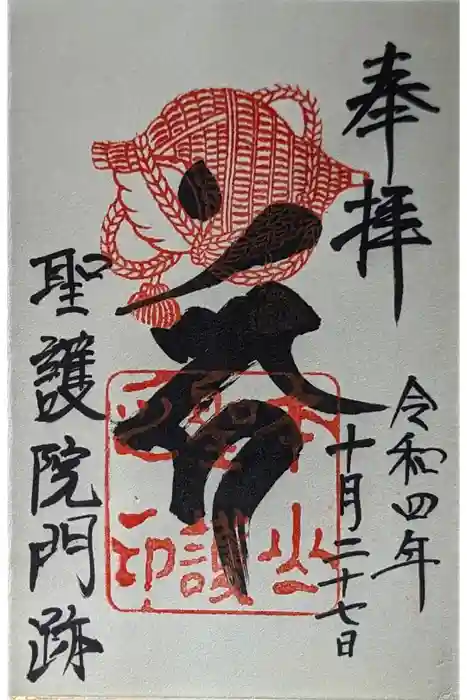 奉拝
令和四年
十月二十七日
聖護院門跡
本山
聖護